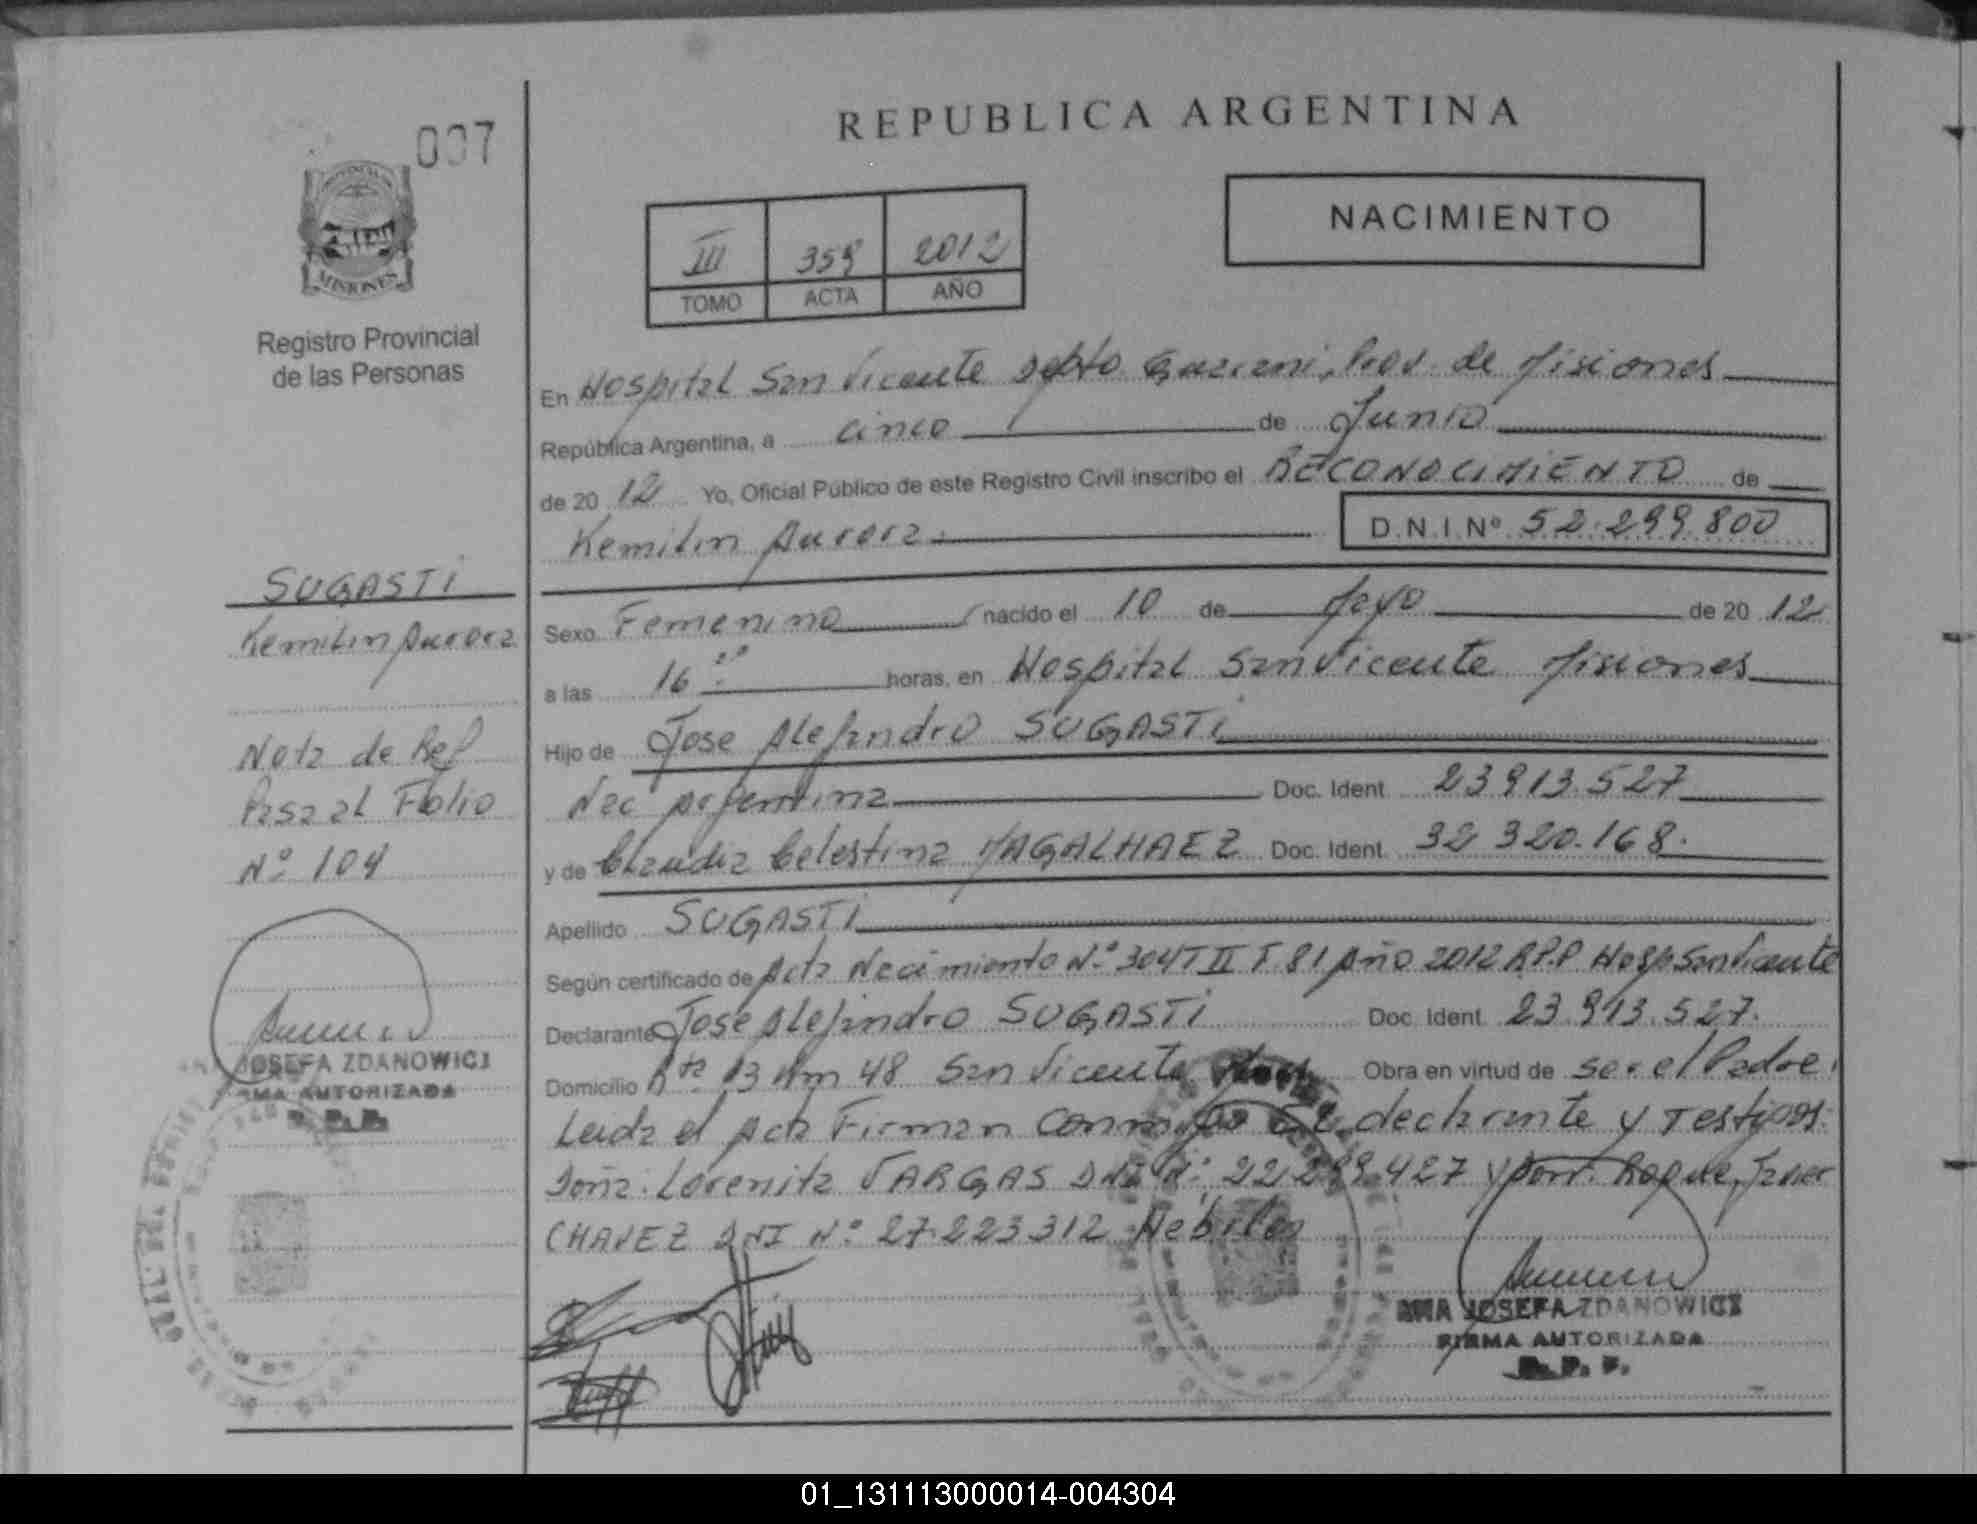 007
REPUBLICA ARGENTINA
NACIMIENTO
III 359 2012
TOMO ACTA AÑO
PROVINCIA
MISIONES
Registro Provincial
de las Personas
En Hospital San Vicente Dpto Guarani, Prov. de Misiones
República Argentina, a cinco de Junio
de 20 12 Yo, Oficial Público de este Registro Civil inscribo el RECONOCIMIENTO de
Kemilin Aurora D.N.I.Nº 52.299.800
Sexo Femenino nacido el 10 de Mayo de 20 12
a las 16 horas, en Hospital San Vicente Misiones
Hijo de Jose Alejandro SUGASTI
Nac Argentina Doc. Ident. 23913.527
y de Claudia Celestina MAGALHAEZ Doc. Ident. 32 320.168.
Apellido SUGASTI
Según certificado de Acta Nacimiento Nº 304 T II F 81 Año 2012 R.P.P Hosp San Vicente
Declarante Jose Alejandro SUGASTI Doc. Ident. 23.913.527.
Domicilio Rta. 13 Km 48 San Vicente Obra en virtud de ser el Padre.
Leida el Acta Firman Conmigo el declarante y Testigos:
Doña: Lorenita VARGAS DNI Nº 22.299.427 y Don: Roque Javier
CHAVEZ DNI Nº 27.223.312 Habiles
ANA JOSEFA ZDANOWICZ
FIRMA AUTORIZADA
R.P.P.
SUGASTI
Kemilin Aurora
Nota de Ref
Pasa al Folio
Nº 104
JOSEFA ZDANOWICZ
FIRMA AUTORIZADA
R.P.P.
01_131113000014-004304